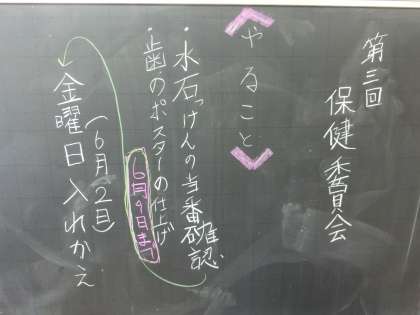 第三回
保健委員会
〈やること〉
・水石けんの当番確認
・歯のポスターの仕上げ
6月9日まで
金曜日入れかえ
(6月2日)